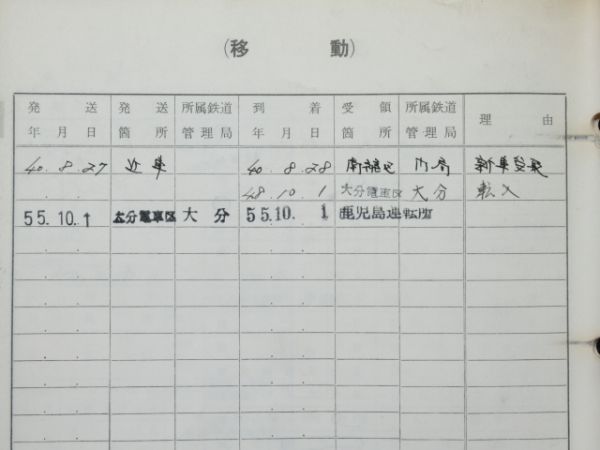 (移 動)
発送年月日 発送箇所 所属鉄道管理局 到着年月日 受領箇所 所属鉄道管理局 理由
40.8.27 近車 40.8.28 南福岡 門局 新車登录
48.10.1 大分電車区 大分 転入
55.10.1 大分電車区 大分 55.10.1 鹿児島運転所